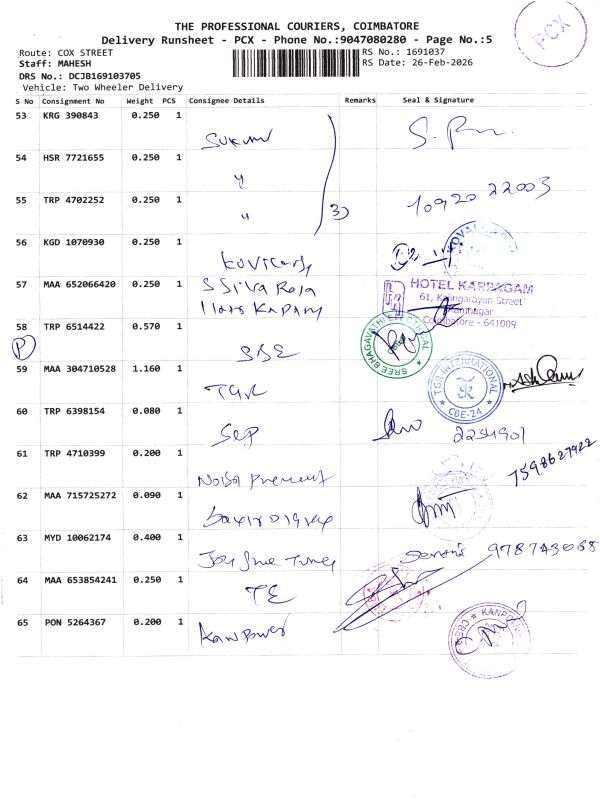 THE PROFESSIONAL COURIERS, COIMBATORE
Delivery Runsheet - PCX - Phone No.:9047080280 - Page No.:5
PCX
Route: COX STREET
RS No.: 1691037
Staff: MAHESH
RS Date: 26-Feb-2026
DRS No.: DCJB169103705
Vehicle: Two Wheeler Delivery
S No Consignment No Weight PCS Consignee Details Remarks Seal & Signature
53 KRG 390843 0.250 1
54 HSR 7721655 0.250 1
55 TRP 4702252 0.250 1
3)
10920 22003
56 KGD 1070930 0.250 1
57 MAA 652066420 0.250 1 S Siva Raja
HOTEL KARPAGAM
61, Kalingarayan Street
Ramnagar
Coimbatore - 641009
58 TRP 6514422 0.570 1
P
SREE BHAGAVATHI ELECTRICAL
SBE
59 MAA 304710528 1.160 1
TGR
TGR INTERNATIONAL
CBE-24
60 TRP 6398154 0.080 1
Sep
2234901
61 TRP 4710399 0.200 1
7598627922
62 MAA 715725272 0.090 1
63 MYD 10062174 0.400 1
978743068
64 MAA 653854241 0.250 1
TE
65 PON 5264367 0.200 1
Kanpower